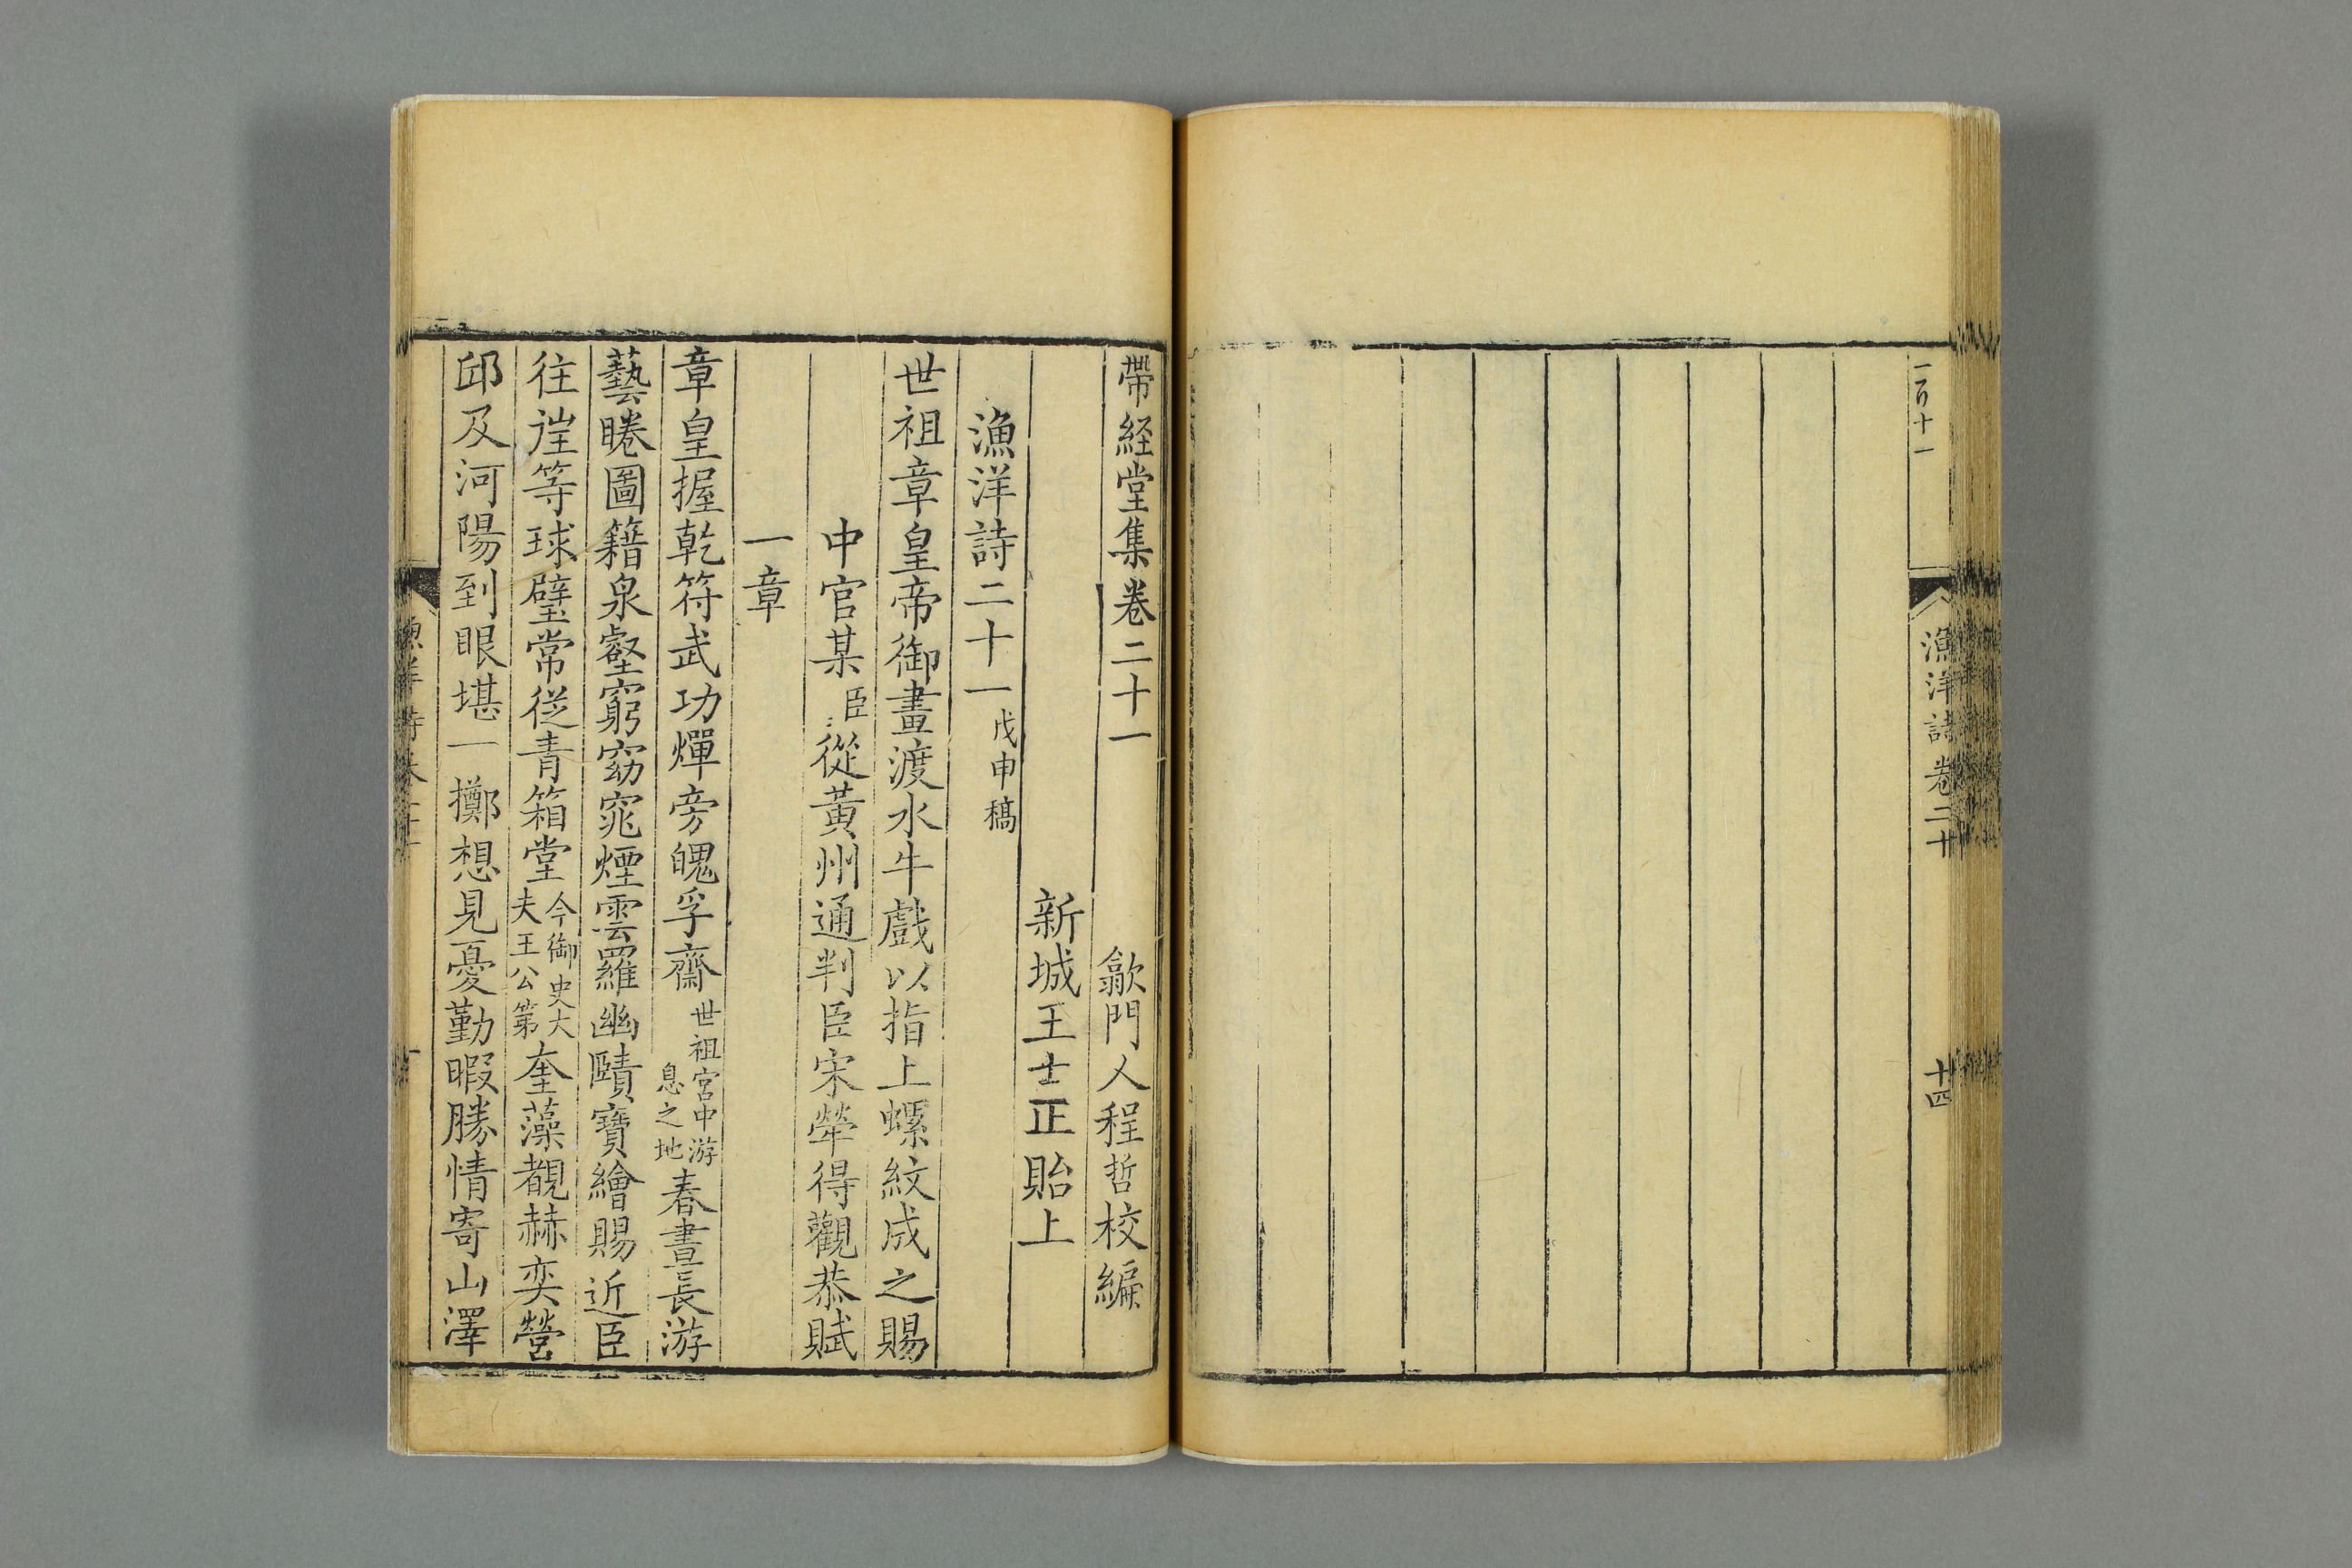 一百十一
漁洋詩卷二十
十四
帶経堂集卷二十一
歙門人程哲校編
新城王士正貽上
漁洋詩二十一戊申稿
世祖章皇帝御畫渡水牛戲以指上螺紋成之賜
中官某臣從黃州通判臣宋犖得觀恭賦
一章
章皇握乾符武功燀旁魄孚齋世祖宮中游息之地春晝長游
藝睠圖籍泉壑窮窈窕煙雲羅幽賾寶繪賜近臣
往徃等球璧常從青箱堂今御史大夫王公第奎藻覩赫奕營
邱及河陽到眼堪一擲想見憂勤暇勝情寄山澤